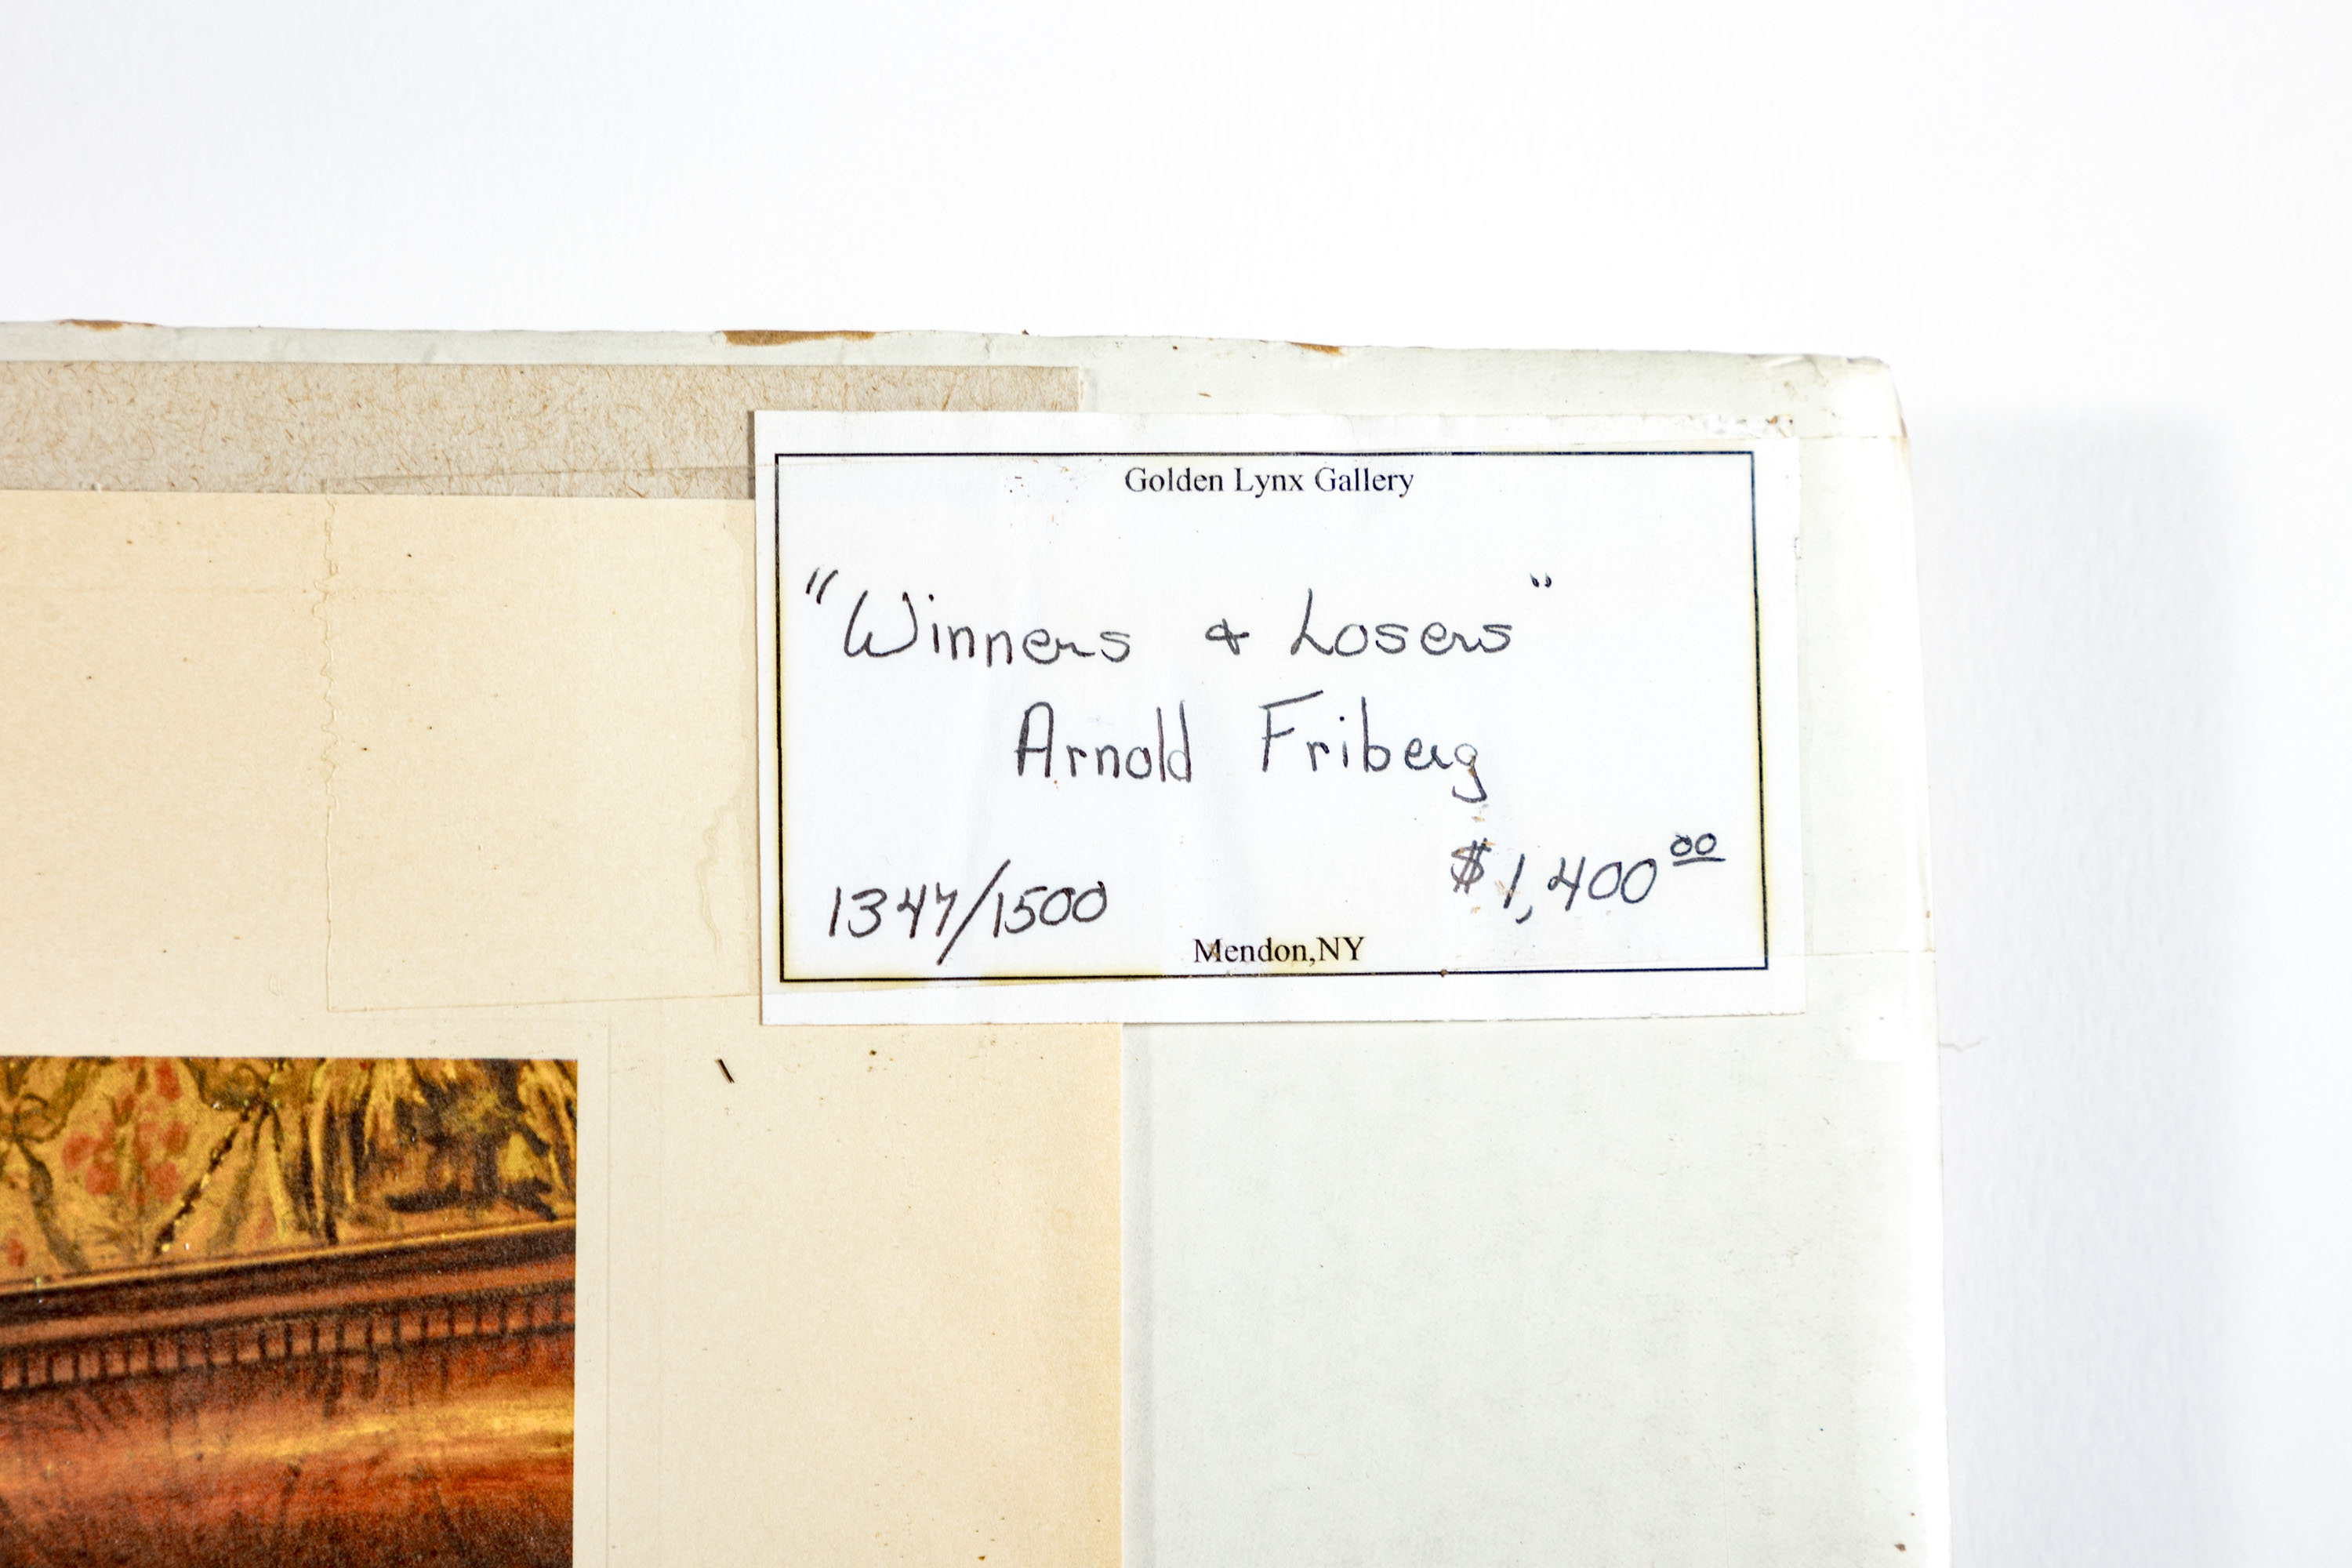 Golden Lynx Gallery
"Winners & Losers"
Arnold Friberg
$1,400 00
1347/1500
Mendon,NY